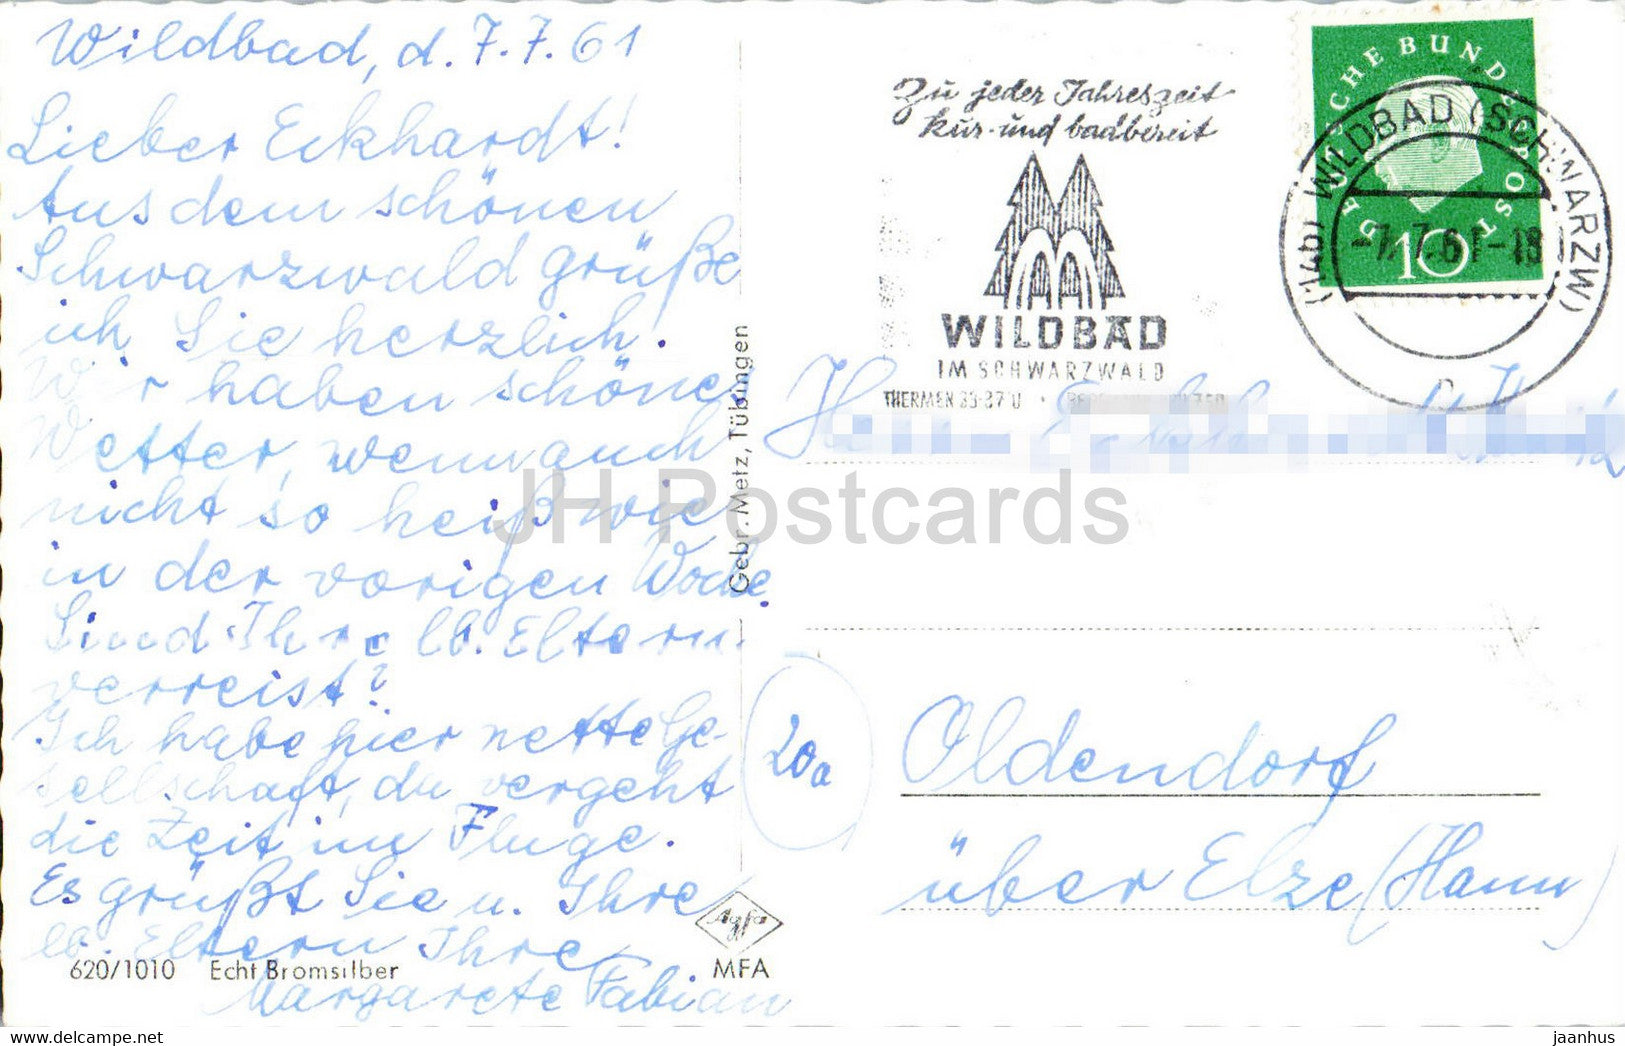 Wildbad, d. 7.7.61
Lieber Eckhardt!
Aus dem schönen
Schwarzwald grüße
ich Sie herzlich.
Wir haben schönes
Wetter, wenn auch
nicht so heiß wie
in der vorigen Woche.
Sind Ihre lb. Eltern
verreist?
Ich habe hier nette Ge-
sellschaft, da vergeht
die Zeit im Fluge.
Es grüßt Sie u. Ihre
lb. Eltern Ihre
Margarete Fabian
620/1010 Echt Bromsilber
Gebr. Metz, Tübingen
Agfa
MFA
Zu jeder Jahreszeit
kur- und badbereit
WILDBAD
IM SCHWARZWALD
THERMEN 35-37
DEUTSCHE BUNDESPOST
10
(14b) WILDBAD (SCHWARZW)
-7.7.61-18
Herrn
20a
Oldendorf
über Elze (Hann)
JH Postcards
https://www.hippostcard.com
jaanhus